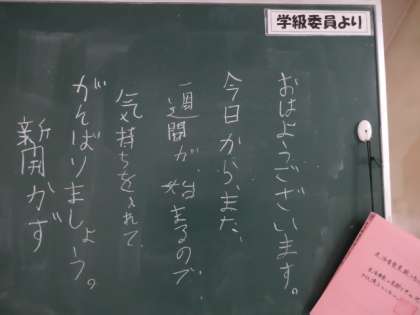 学級委員より
おはようございます。
今日から、また、
一週間が、始まるので、
気持ちを入れて、
がんばりましょう。
新開かず